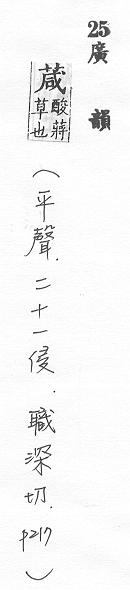 25廣韻
葴酸蔣草也
(平聲.二十一侵.職深切.p217)